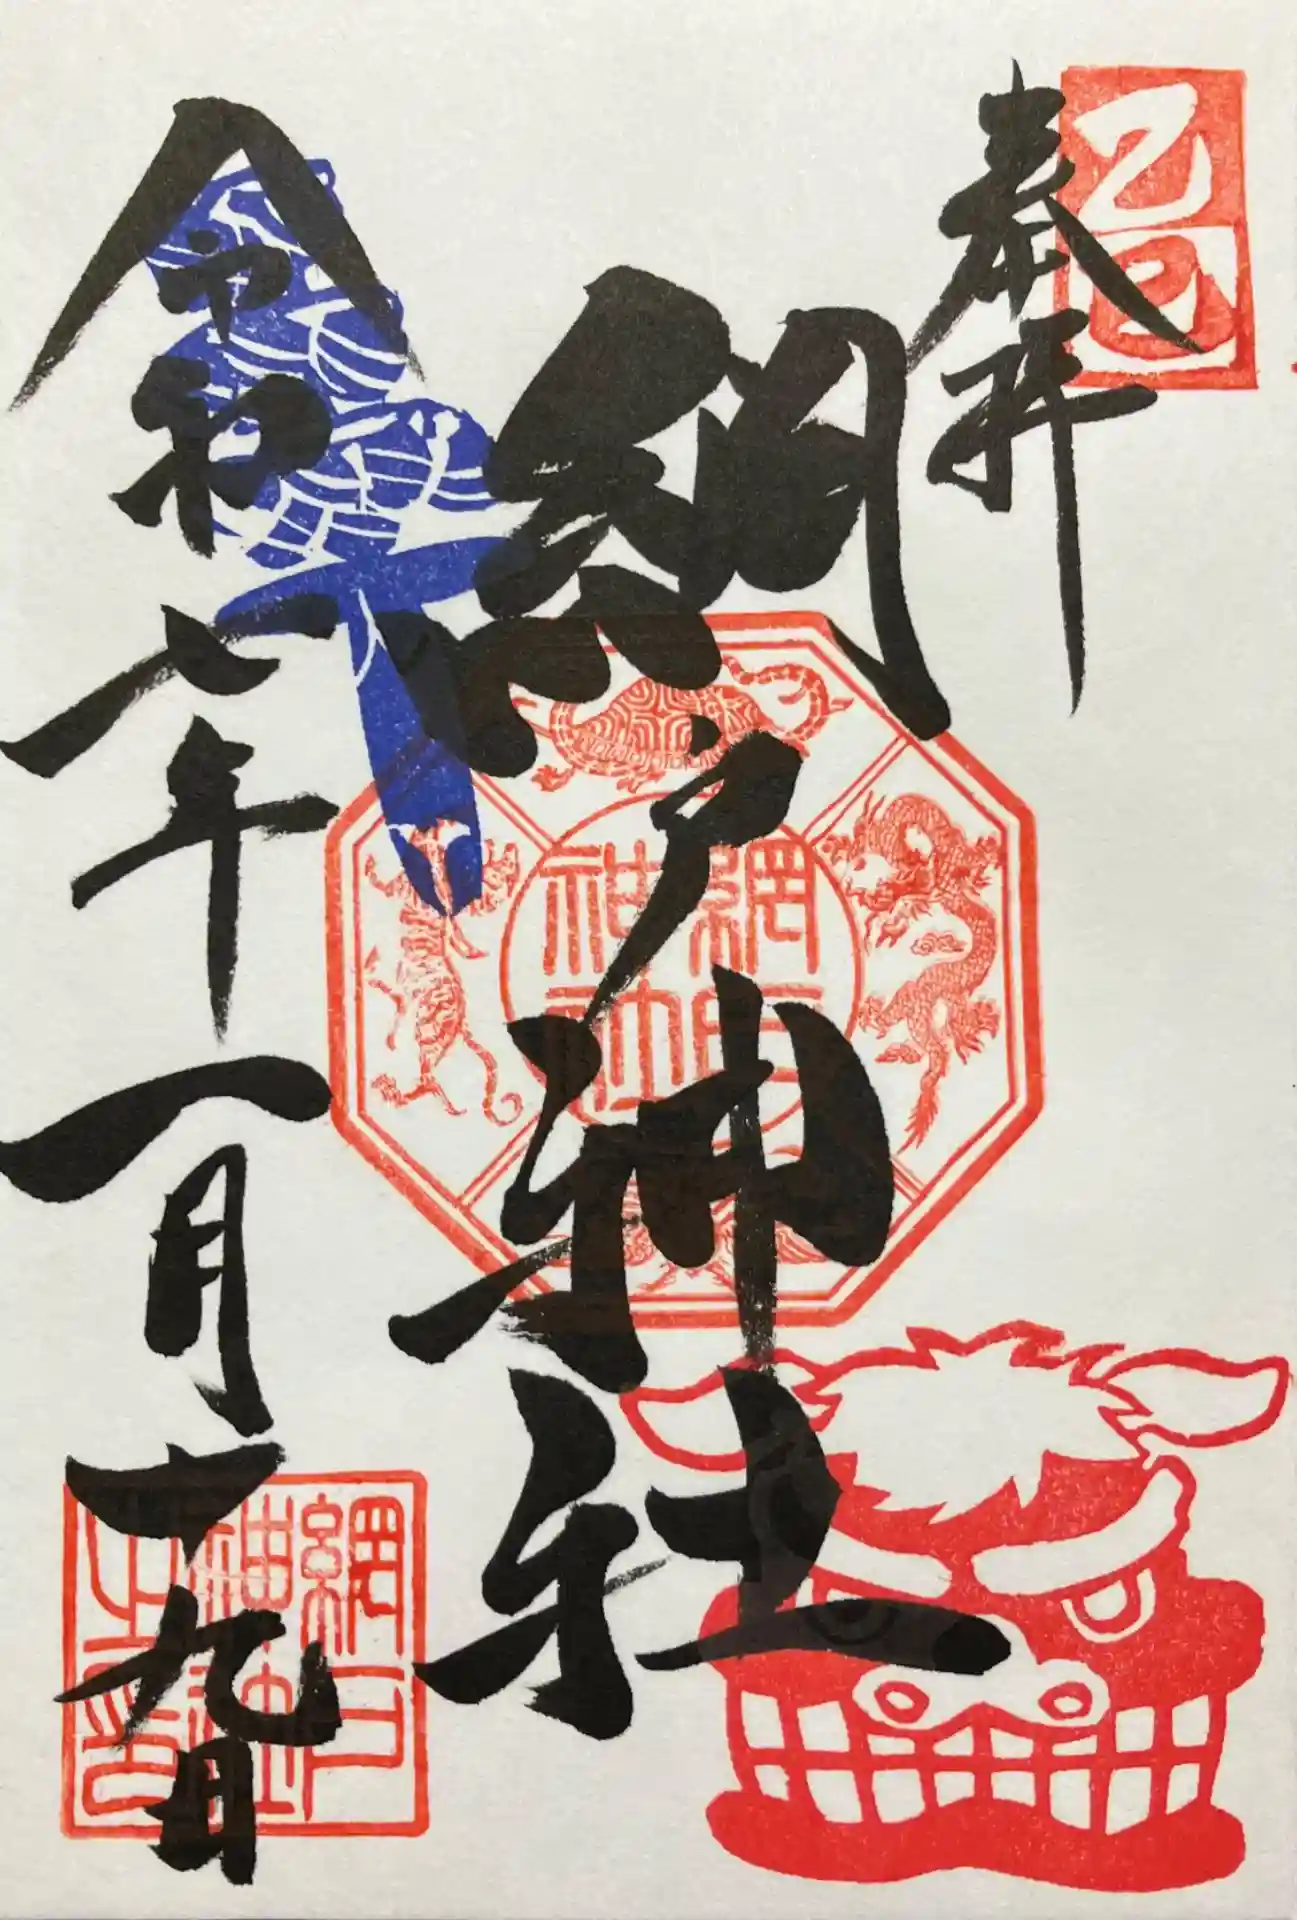 乙巳
奉拝
網戸神社
網戸
神社
令和七年一月十九日
網戸
神社
之印